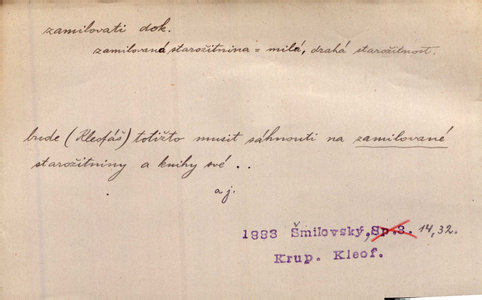 zamilovati dok.
zamilovaná starožitnina = milá, drahá starožitnost.
bude (Kleofáš) totižto musit sáhnouti na zamilované
starožitniny a knihy své . .
a j.
1883 Šmilovský, Sp. 3. 14, 32.
Krup. Kleof.